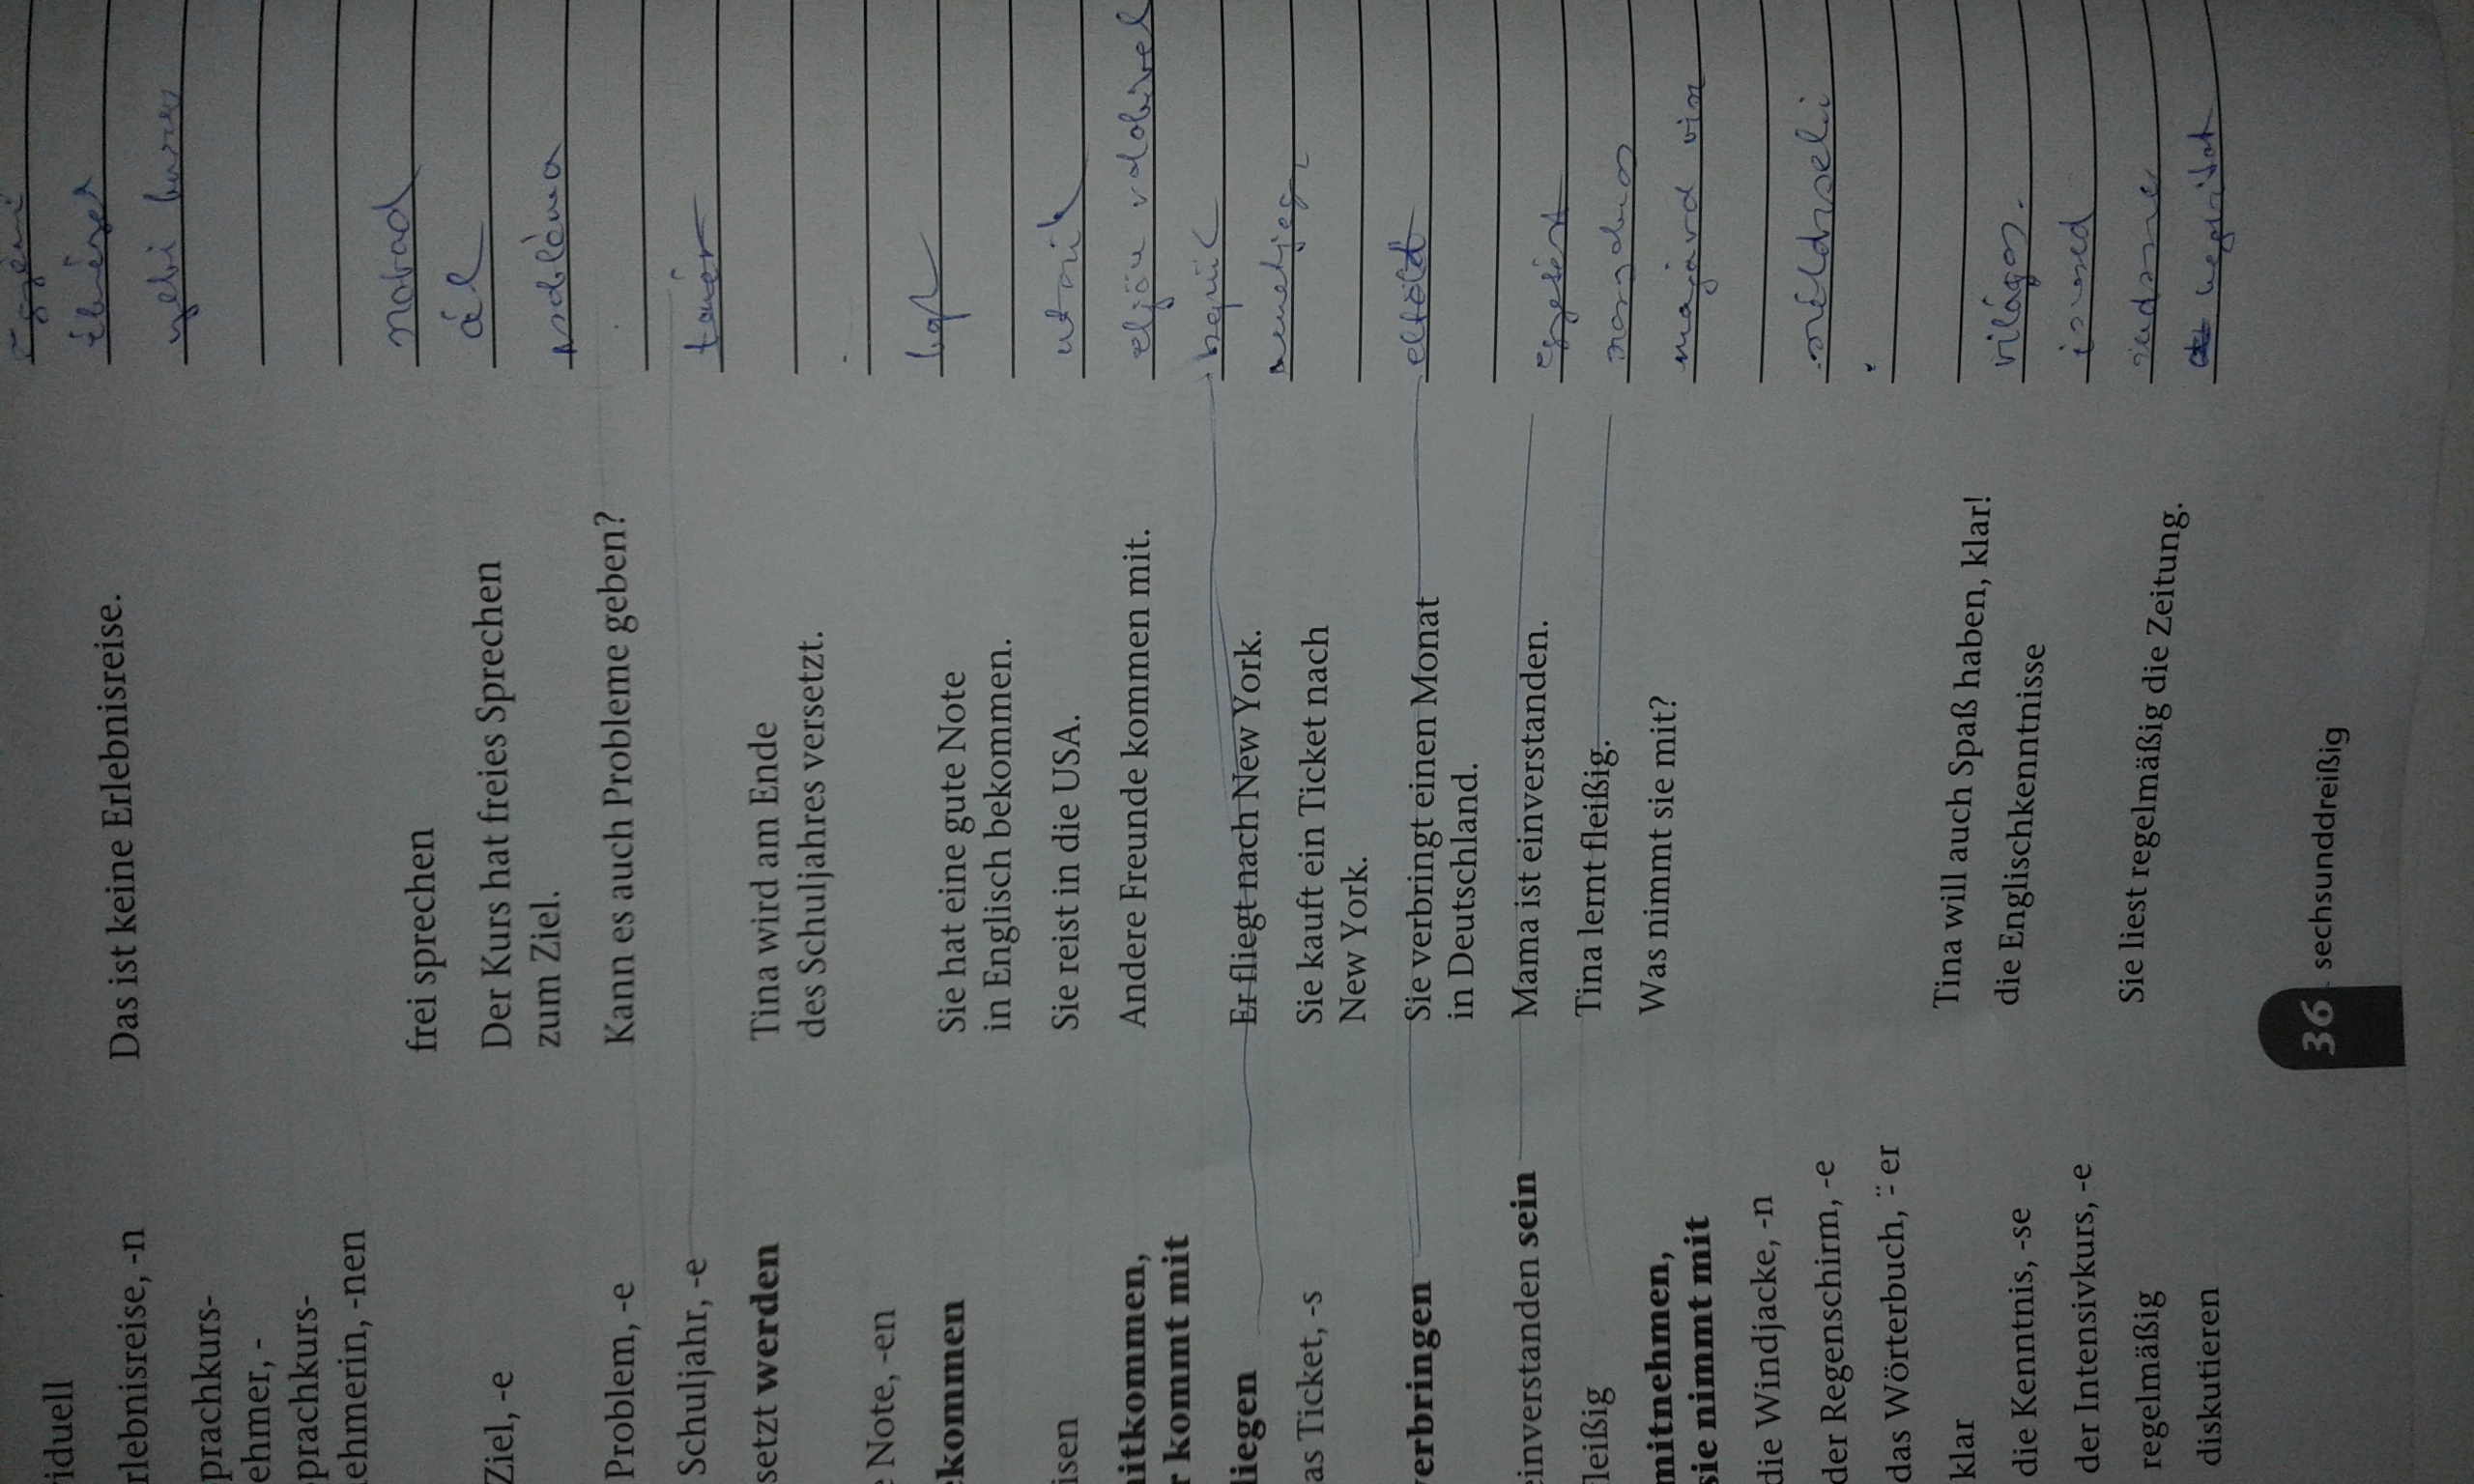 iduell
rlebnisreise, -n Das ist keine Erlebnisreise.
prachkurs-
ehmer, -
prachkurs-
ehmerin, -nen
frei sprechen szabad
Ziel, -e Der Kurs hat freies Sprechen
zum Ziel.
cél
Problem, -e Kann es auch Probleme geben? probléma
Schuljahr, -e
setzt werden Tina wird am Ende
des Schuljahres versetzt.
Note, -en
kommen Sie hat eine gute Note
in Englisch bekommen.
isen Sie reist in die USA. utazik
itkommen,
r kommt mit
Andere Freunde kommen mit. eljön valakivel
liegen Er fliegt nach New York. repül
as Ticket, -s Sie kauft ein Ticket nach
New York.
verbringen Sie verbringt einen Monat
in Deutschland.
eltölt
einverstanden sein Mama ist einverstanden. egyetért
leißig Tina lernt fleißig. szorgalmas
mitnehmen,
sie nimmt mit
Was nimmt sie mit?
die Windjacke, -n
der Regenschirm, -e
das Wörterbuch, ¨-er
klar Tina will auch Spaß haben, klar! világos
die Kenntnis, -se die Englischkenntnisse
der Intensivkurs, -e
regelmäßig Sie liest regelmäßig die Zeitung.
diskutieren
36 sechsunddreißig